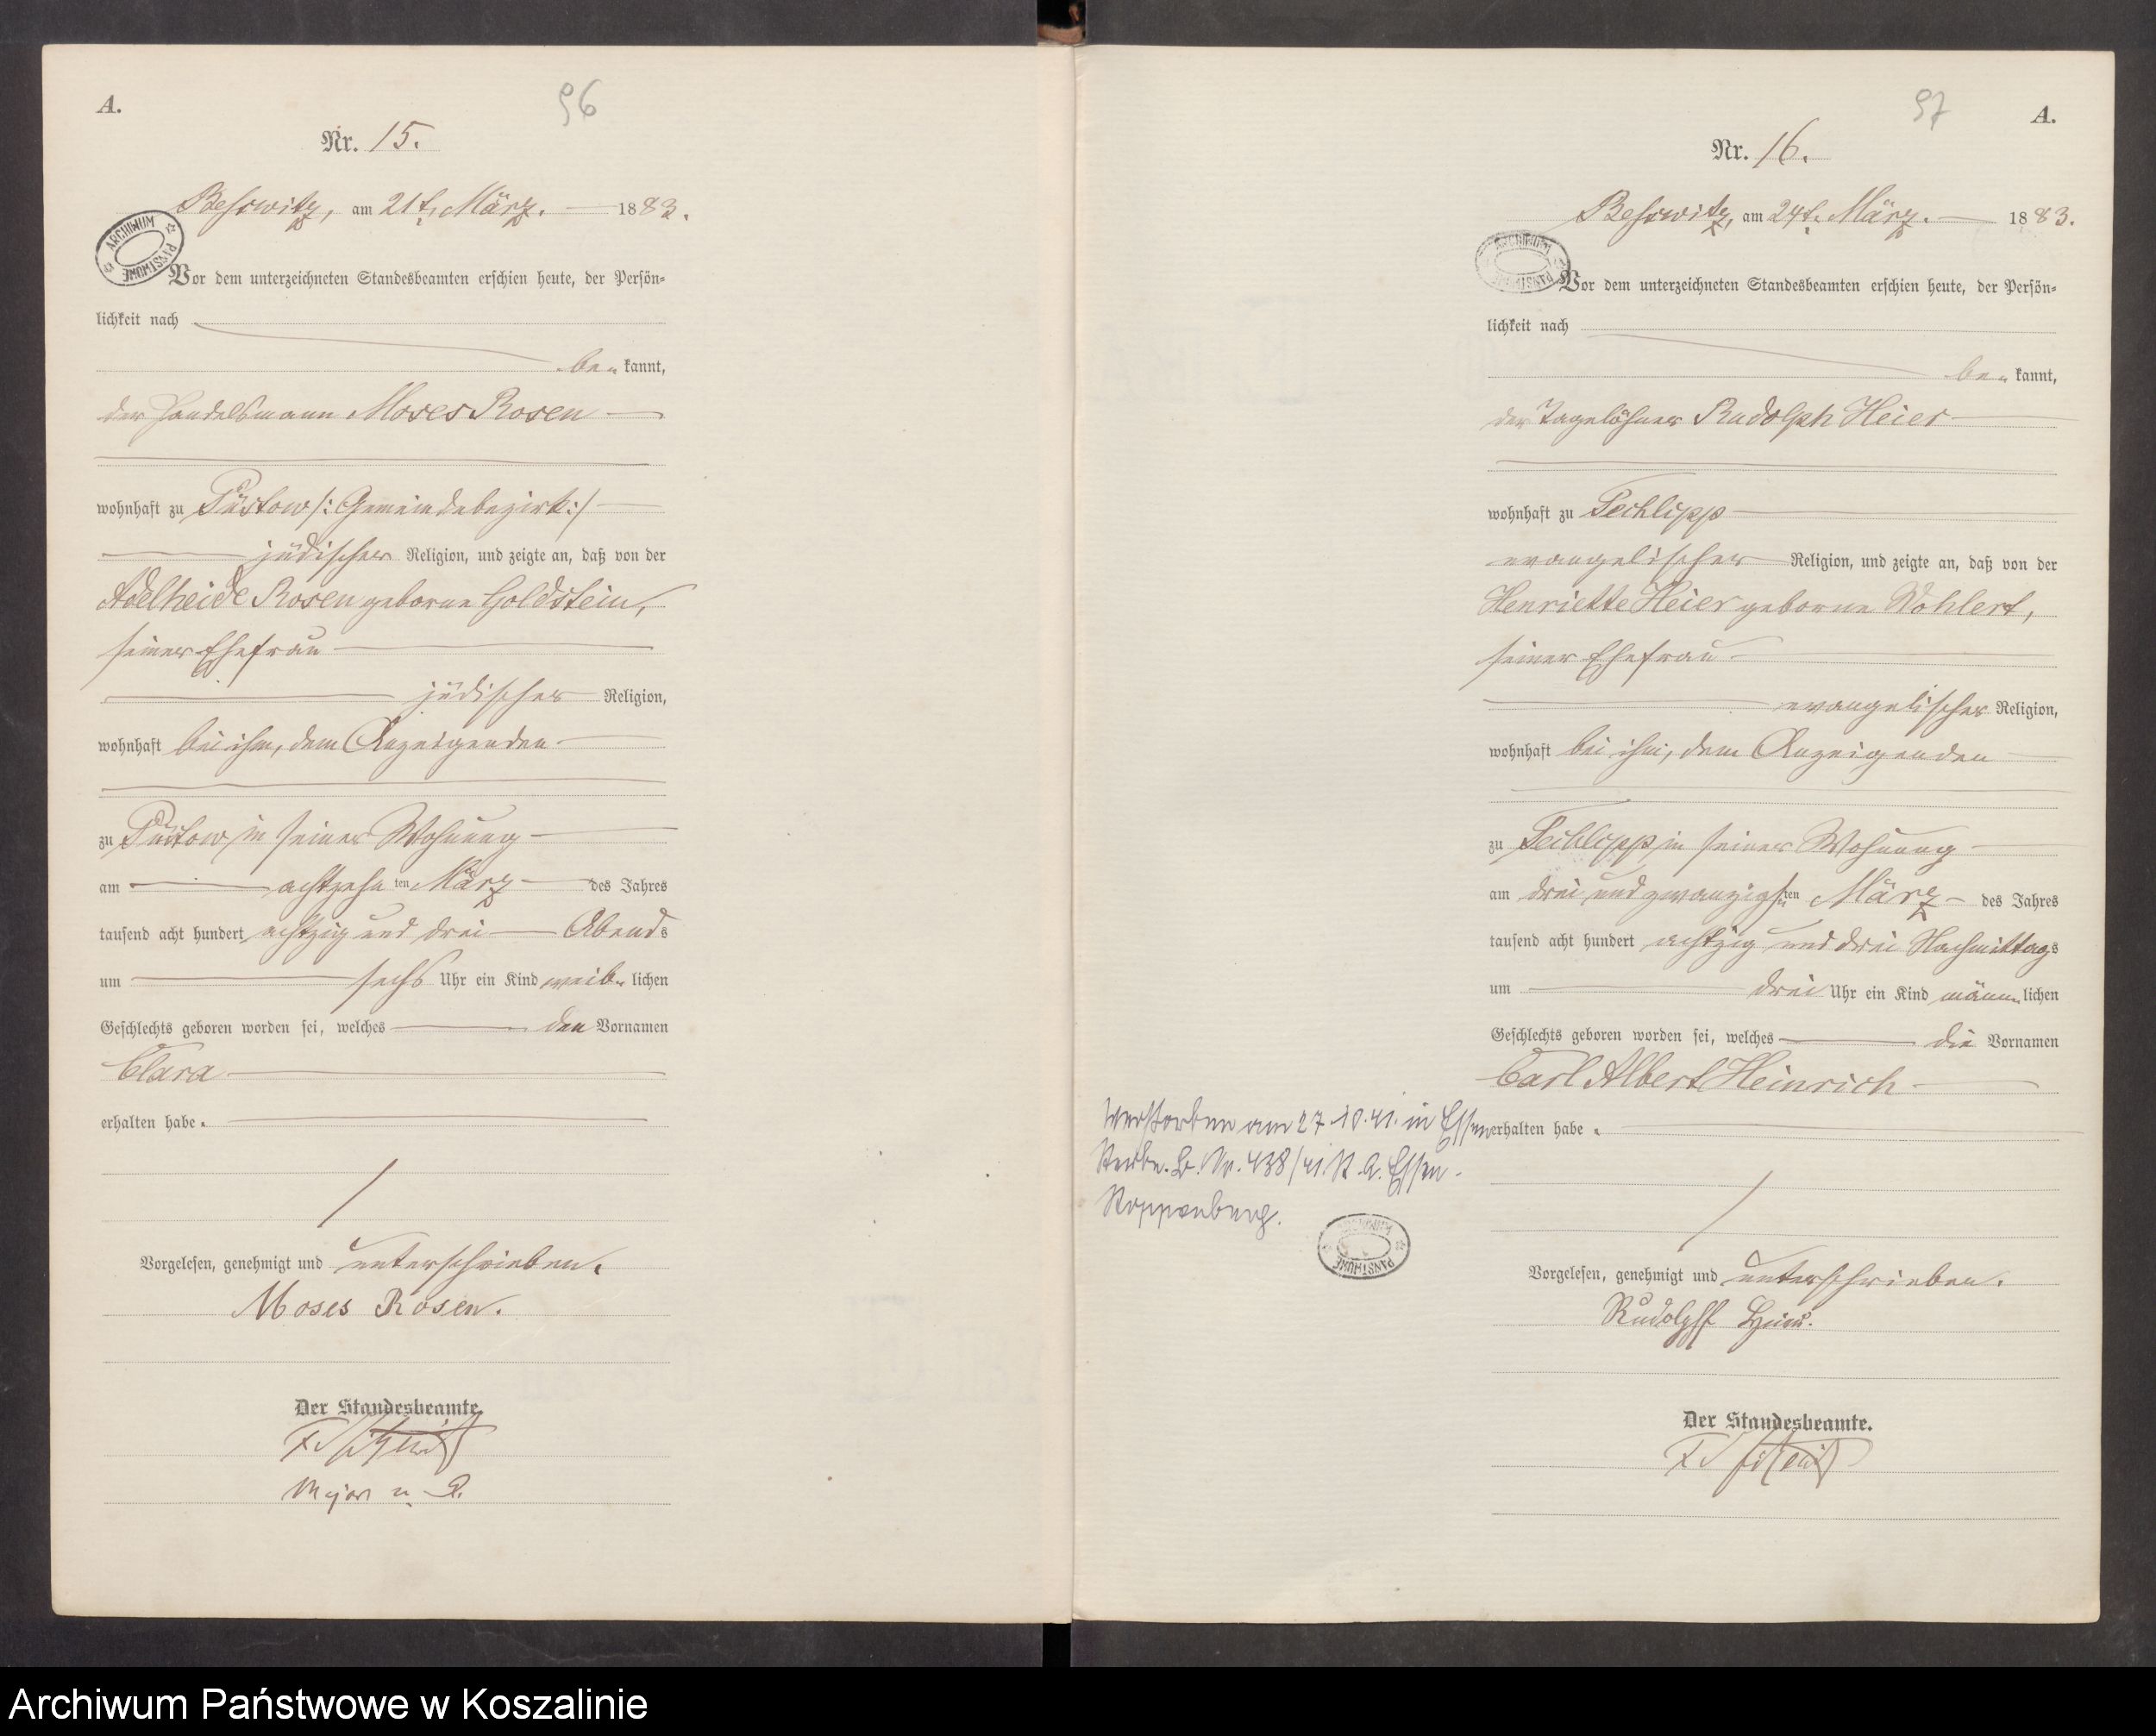 A.
96
Nr. 15.
Beßwitz, am 21t. März. 1883.
ARCHIWUM PAŃSTWOWE
Vor dem unterzeichneten Standesbeamten erschien heute, der Persön-
lichkeit nach
be- kannt,
der Handelsmann Moses Rosen
wohnhaft zu Püstow /: Gemeindebezirk :/
jüdischer Religion, und zeigte an, daß von der
Adelheide Rosen geborne Goldstein,
seiner Ehefrau
jüdischer Religion,
wohnhaft bei ihm, dem Anzeigenden
zu Püstow in seiner Wohnung
am achtzehnten März des Jahres
tausend acht hundert achtzig und drei Abends
um sechs Uhr ein Kind weib- lichen
Geschlechts geboren worden sei, welches den Vornamen
Clara
erhalten habe.
Vorgelesen, genehmigt und unterschrieben.
Moses Rosen.
Der Standesbeamte
Major a. D.
97
A.
Nr. 16.
Beßwitz, am 24t. März. 1883.
ARCHIWUM PAŃSTWOWE
Vor dem unterzeichneten Standesbeamten erschien heute, der Persön-
lichkeit nach
be- kannt,
der Tagelöhner Rudolph Heier
wohnhaft zu Techlipp
evangelischer Religion, und zeigte an, daß von der
Henriette Heier geborne Wohlert,
seiner Ehefrau
evangelischer Religion,
wohnhaft bei ihm, dem Anzeigenden
zu Techlipp in seiner Wohnung
am drei und zwanzigsten März des Jahres
tausend acht hundert achtzig und drei Nachmittags
um drei Uhr ein Kind männ- lichen
Geschlechts geboren worden sei, welches die Vornamen
Carl Albert Heinrich
erhalten habe.
Verstorben am 27.10.41. in Essen
Sterbe. B. Nr. 438/41. St. A. Essen-
Stoppenberg.
ARCHIWUM PAŃSTWOWE
Vorgelesen, genehmigt und unterschrieben.
Rudolph Heier.
Der Standesbeamte.
Archiwum Państwowe w Koszalinie